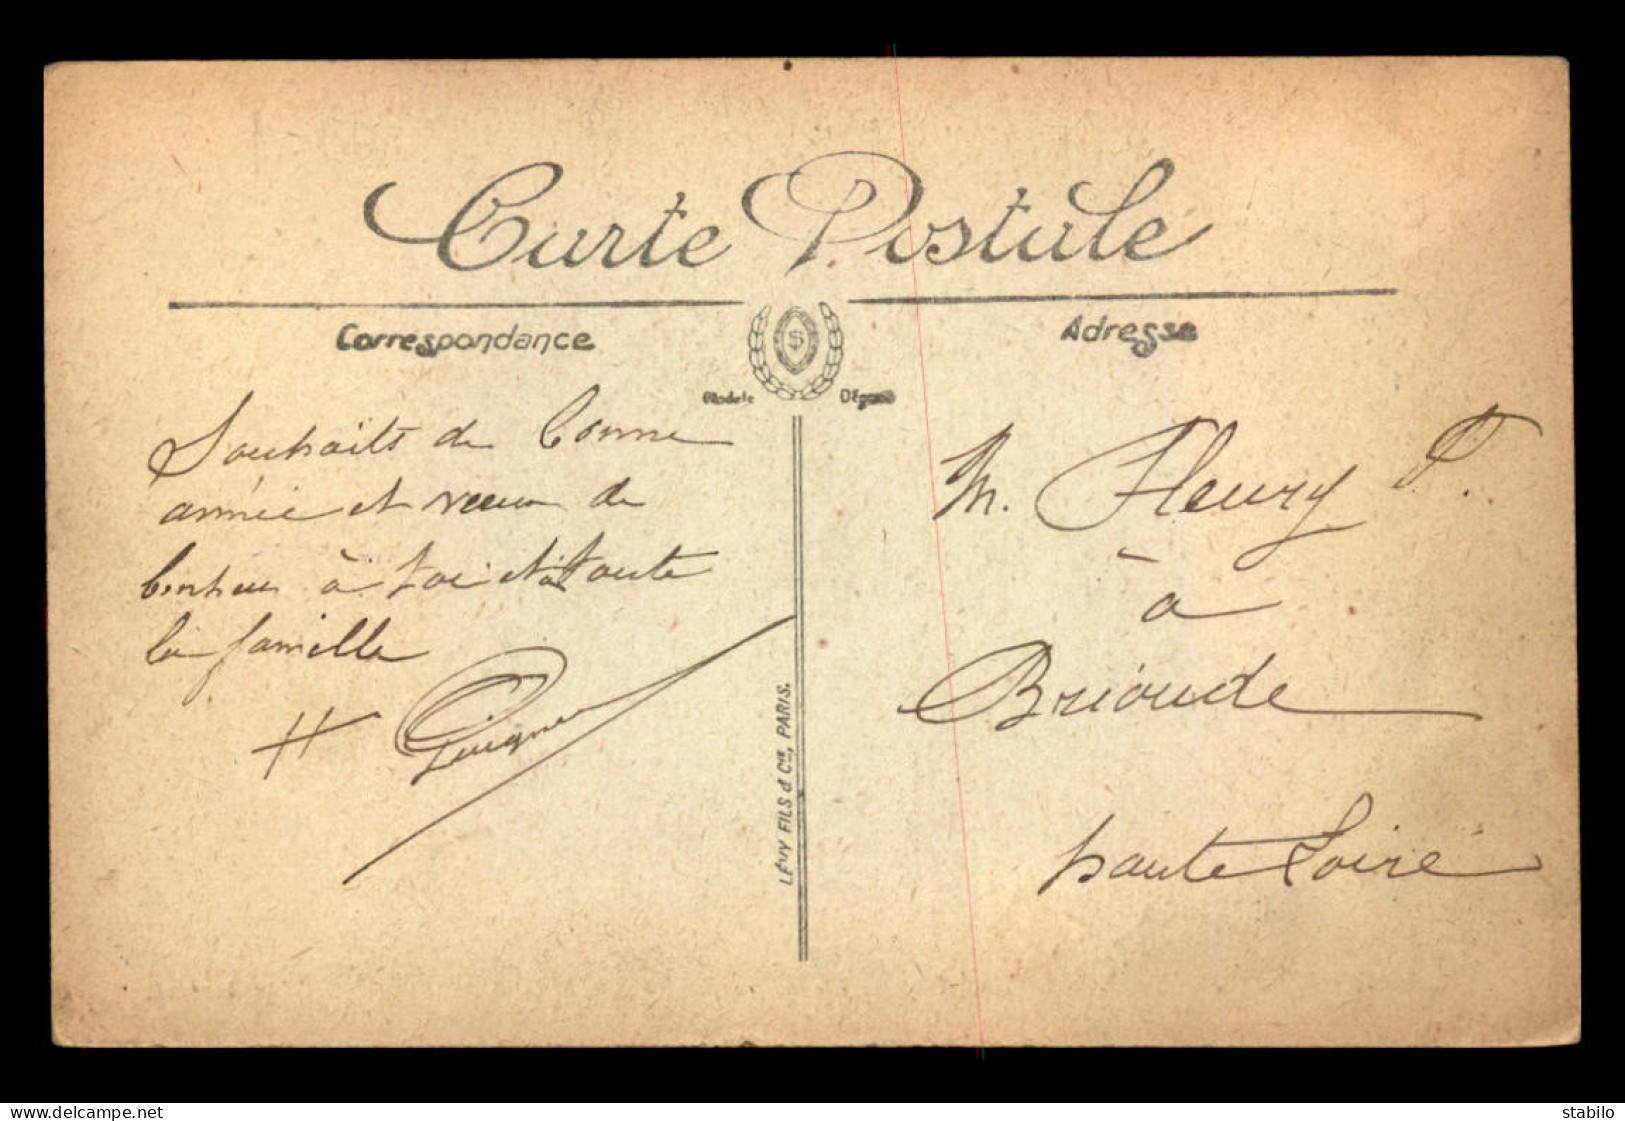 Carte Postale
Correspondance
Adresse
Modele Déposé
Souhaits de bonne
année et vœux de
bonheur à toi et à toute
la famille
H
LÉVY FILS & Cie, PARIS.
M. Fleury P.
à
Brioude
haute Loire
www.delcampe.net
stabilo